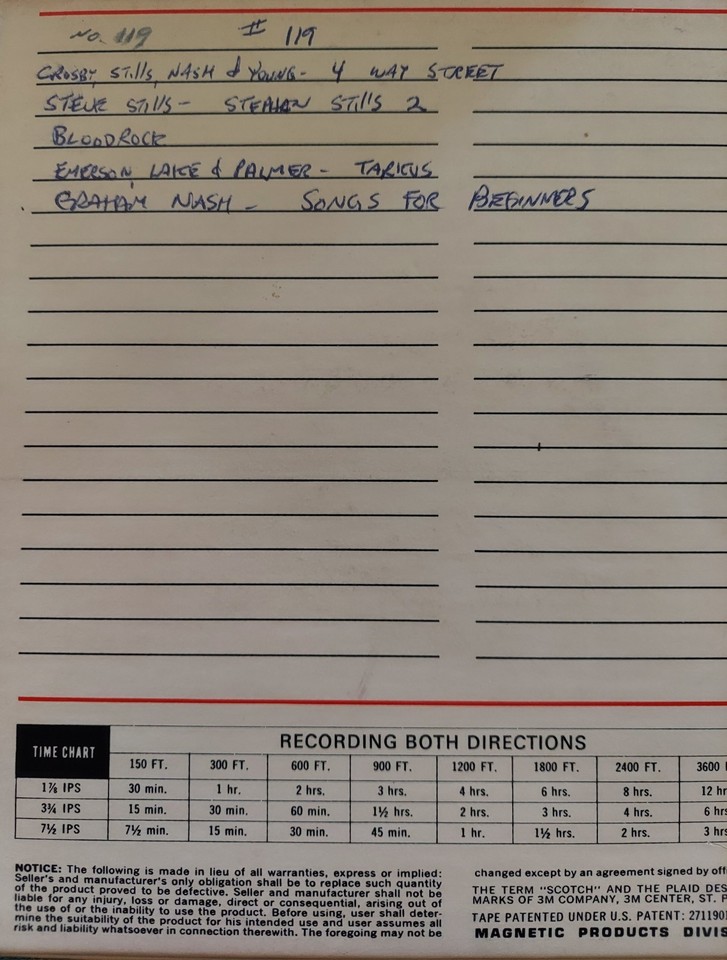 No. 119 # 119
CROSBY, STILLS, NASH & YOUNG - 4 WAY STREET
STEVE STILLS - STEPHAN STILLS 2
BLOODROCK
EMERSON, LAKE & PALMER - TARKUS
GRAHAM NASH - SONGS FOR BEGINNERS
TIME CHART RECORDING BOTH DIRECTIONS
150 FT. 300 FT. 600 FT. 900 FT. 1200 FT. 1800 FT. 2400 FT. 3600
1⅞ IPS 30 min. 1 hr. 2 hrs. 3 hrs. 4 hrs. 6 hrs. 8 hrs. 12 hr
3¾ IPS 15 min. 30 min. 60 min. 1½ hrs. 2 hrs. 3 hrs. 4 hrs. 6 hrs
7½ IPS 7½ min. 15 min. 30 min. 45 min. 1 hr. 1½ hrs. 2 hrs. 3 hrs
NOTICE: The following is made in lieu of all warranties, express or implied:
Seller's and manufacturer's only obligation shall be to replace such quantity
of the product proved to be defective. Seller and manufacturer shall not be
liable for any injury, loss or damage, direct or consequential, arising out of
the use of or the inability to use the product. Before using, user shall deter-
mine the suitability of the product for his intended use and user assumes all
risk and liability whatsoever in connection therewith. The foregoing may not be
changed except by an agreement signed by off
THE TERM "SCOTCH" AND THE PLAID DES
MARKS OF 3M COMPANY, 3M CENTER, ST. P
TAPE PATENTED UNDER U.S. PATENT: 2711901
MAGNETIC PRODUCTS DIVIS